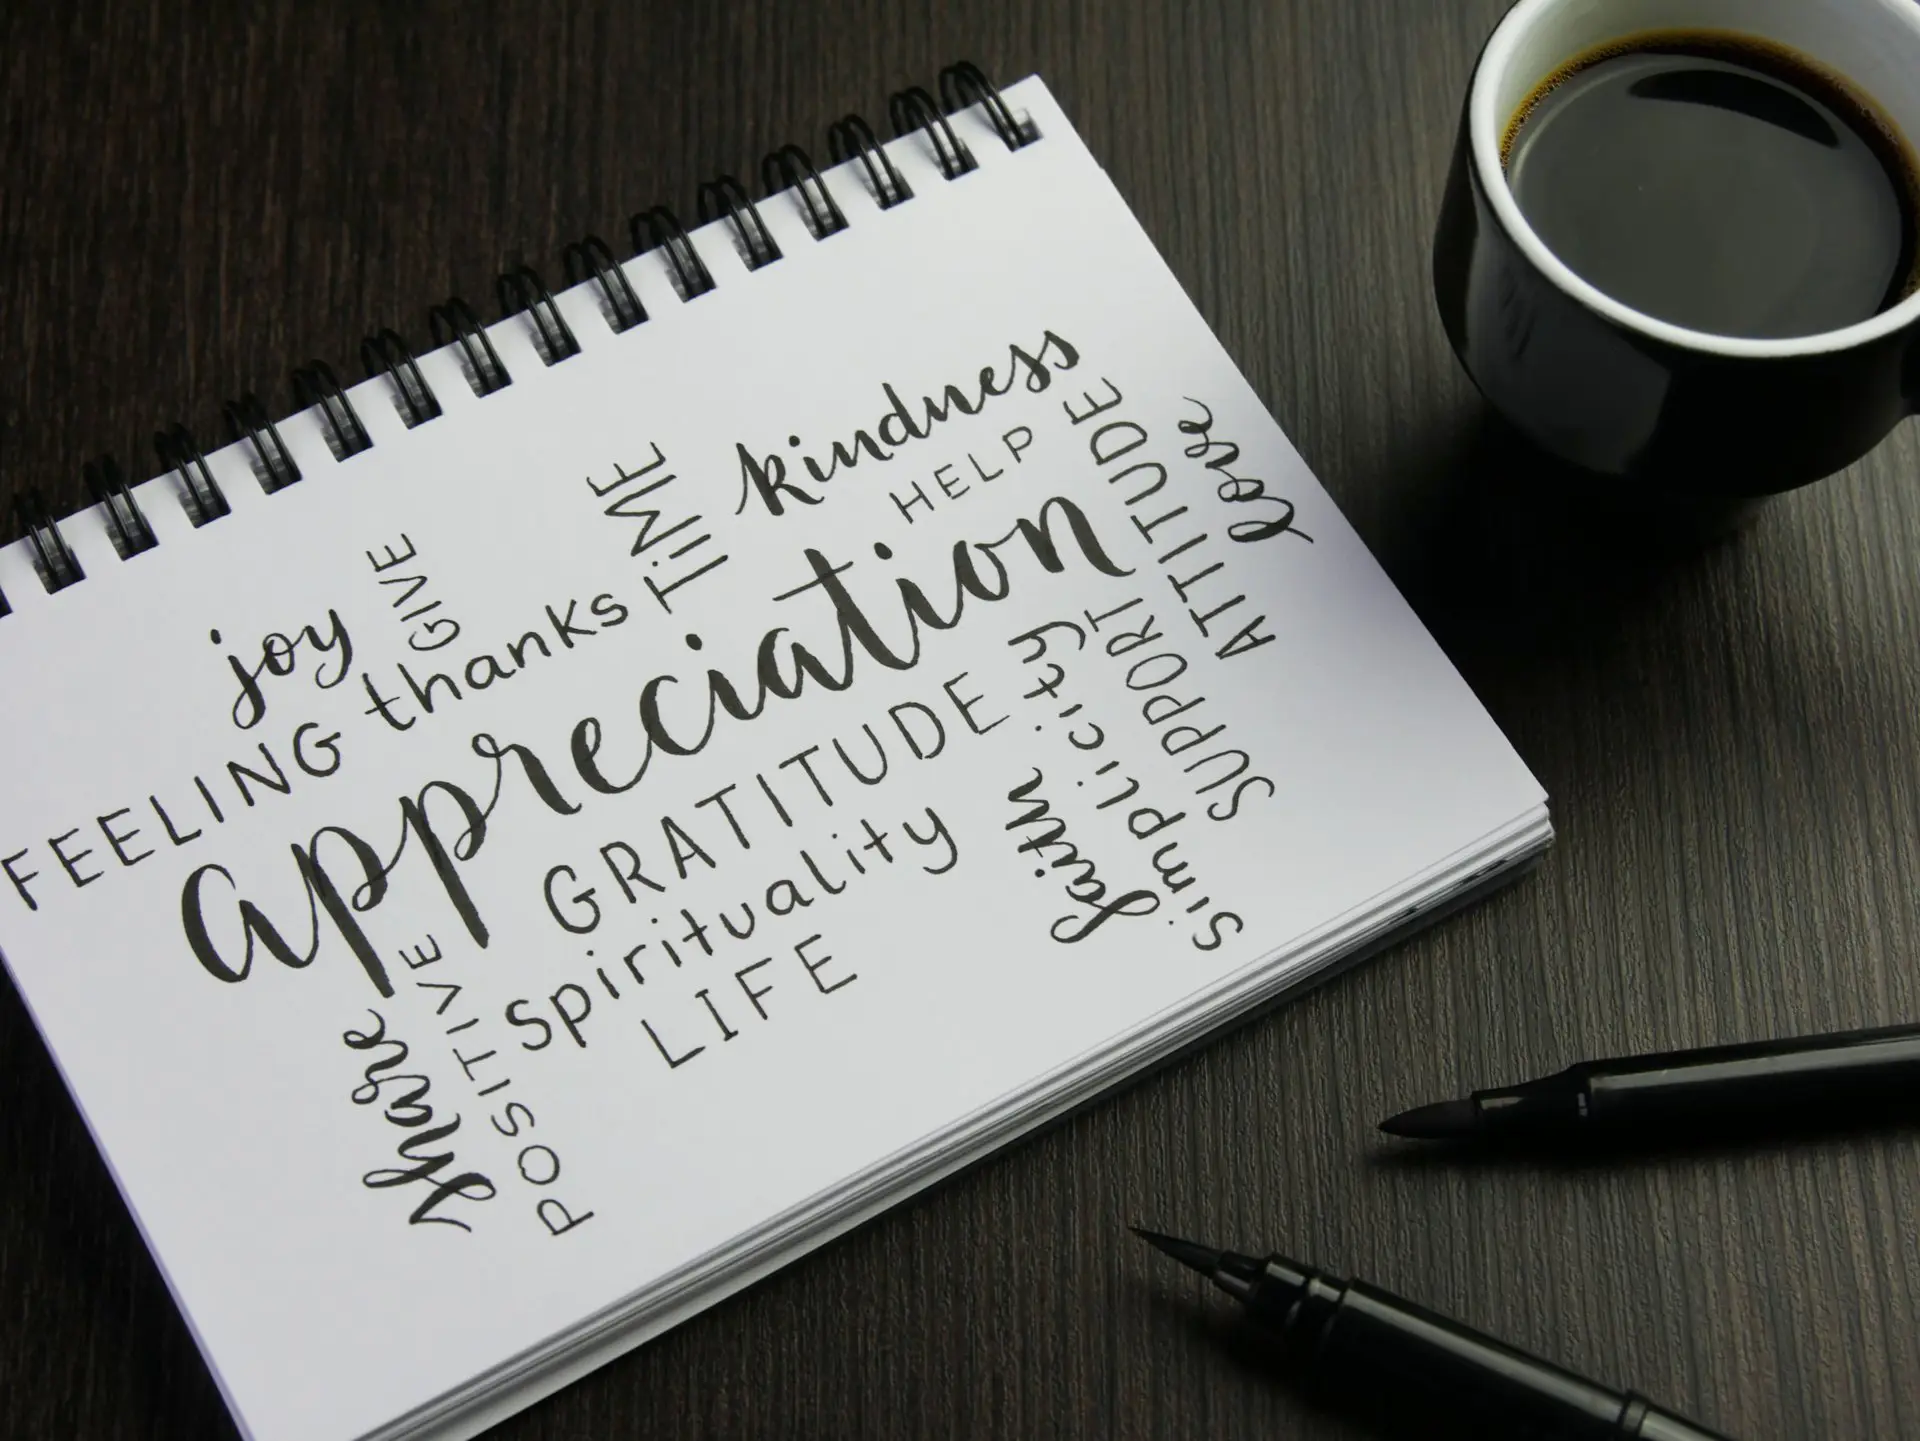 kindness
HELP
TiME
GIVE
joy
thanks
FEELING
appreciation
GRATITUDE
Spirituality
LIFE
share
POSITIVE
faith
simplicity
SUPPORT
ATTITUDE
love